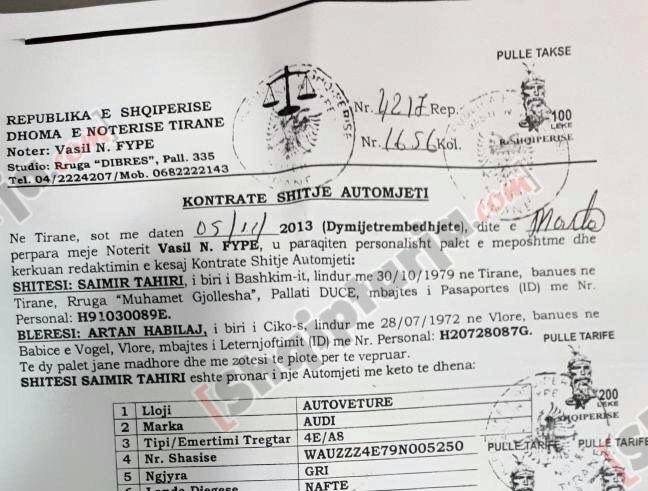 PULLE TAKSE
REPUBLIKA E SHQIPERISE
DHOMA E NOTERISE TIRANE
Noter: Vasil N. FYPE
Studio: Rruga "DIBRES", Pall. 335
Tel. 04/2224207/Mob. 0682222143
Nr. 4217 Rep.
Nr. 1656 Kol.
100
LEKE
R.SHQIPERISE
KONTRATE SHITJE AUTOMJETI
Ne Tirane, sot me daten 05/11/ 2013 (Dymijetrembedhjete), dite e Marte
perpara meje Noterit Vasil N. FYPE, u paraqiten personalisht palet e meposhtme dhe
kerkuan redaktimin e kesaj Kontrate Shitje Automjeti:
SHITESI: SAIMIR TAHIRI, i biri i Bashkim-it, lindur me 30/10/1979 ne Tirane, banues ne
Tirane, Rruga "Muhamet Gjollesha", Pallati DUCE, mbajtes i Pasaportes (ID) me Nr.
Personal: H91030089E.
BLERESI: ARTAN HABILAJ, i biri i Ciko-s, lindur me 28/07/1972 ne Vlore, banues ne
Babice e Vogel, Vlore, mbajtes i Leternjoftimi (ID) me Nr. Personal: H20728087G.
Te dy palet jane madhore dhe me zotesi te plote per te vepruar.
SHITESI SAIMIR TAHIRI eshte pronar i nje Automjeti me keto te dhena:
PULLE TARIFE
200
LEKE
R.SHQIPERISE
PULLE TARIFE
PULLE TARIFE
1 Lloji AUTOVETURE
2 Marka AUDI
3 Tipi/Emertimi Tregtar 4E/A8
4 Nr. Shasise WAUZZZ4E79N005250
5 Ngjyra GRI
6 Lende Djegese NAFTE
[shqiptarja.com]